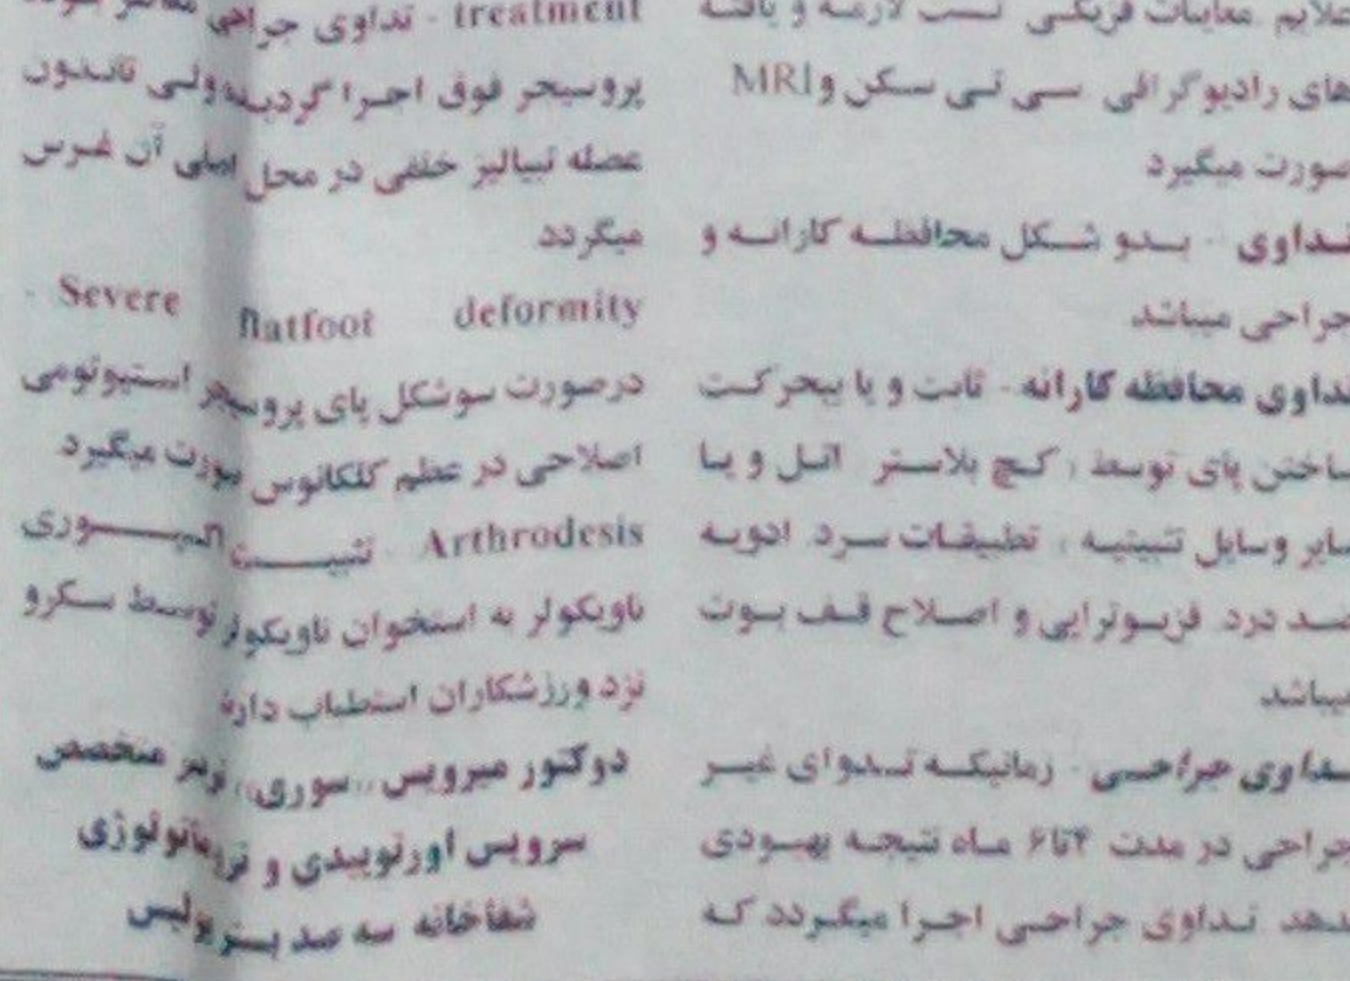 علایم معاینات فزیکی تست لازمه و یافته
های رادیوگرافی سی تی سکن و MRI
صورت میگیرد
تداوی - بدو شکل محافظه کارانه و
جراحی میباشد
تداوی محافظه کارانه - ثابت و یا بیحرکت
ساختن پای توسط ، کچ پلاستر اتل و یا
سایر وسایل تثبیتیه ، تطبیقات سرد ادویه
ضد درد فزیوتراپی و اصلاح قف بوت
میباشد
تداوی جراحی - زمانیکه تدوای غیر
جراحی در مدت ۴تا۶ ماه نتیجه بهبودی
ندهد تداوی جراحی اجرا میگردد که
treatment - تداوی جراحی
پروسیجر فوق اجرا گردیده ولی تاندون
عضله تیبیالیز خلفی در محل اصلی آن غرس
میگردد
- Severe flatfoot deformity
درصورت سوشکل پای پروسیجر استیوتومی
اصلاحی در عظم کلکانوس صورت میگیرد
Arthrodesis - تثبیت
ناویکولر به استخوان ناویکولر توسط سکرو
نزد ورزشکاران استطباب دارد
دوکتور میرویس ,,سوری,, ترینر متخصص
سرویس اورتوپیدی و تروماتولوژی
شفاخانه سه صد بستر پولیس